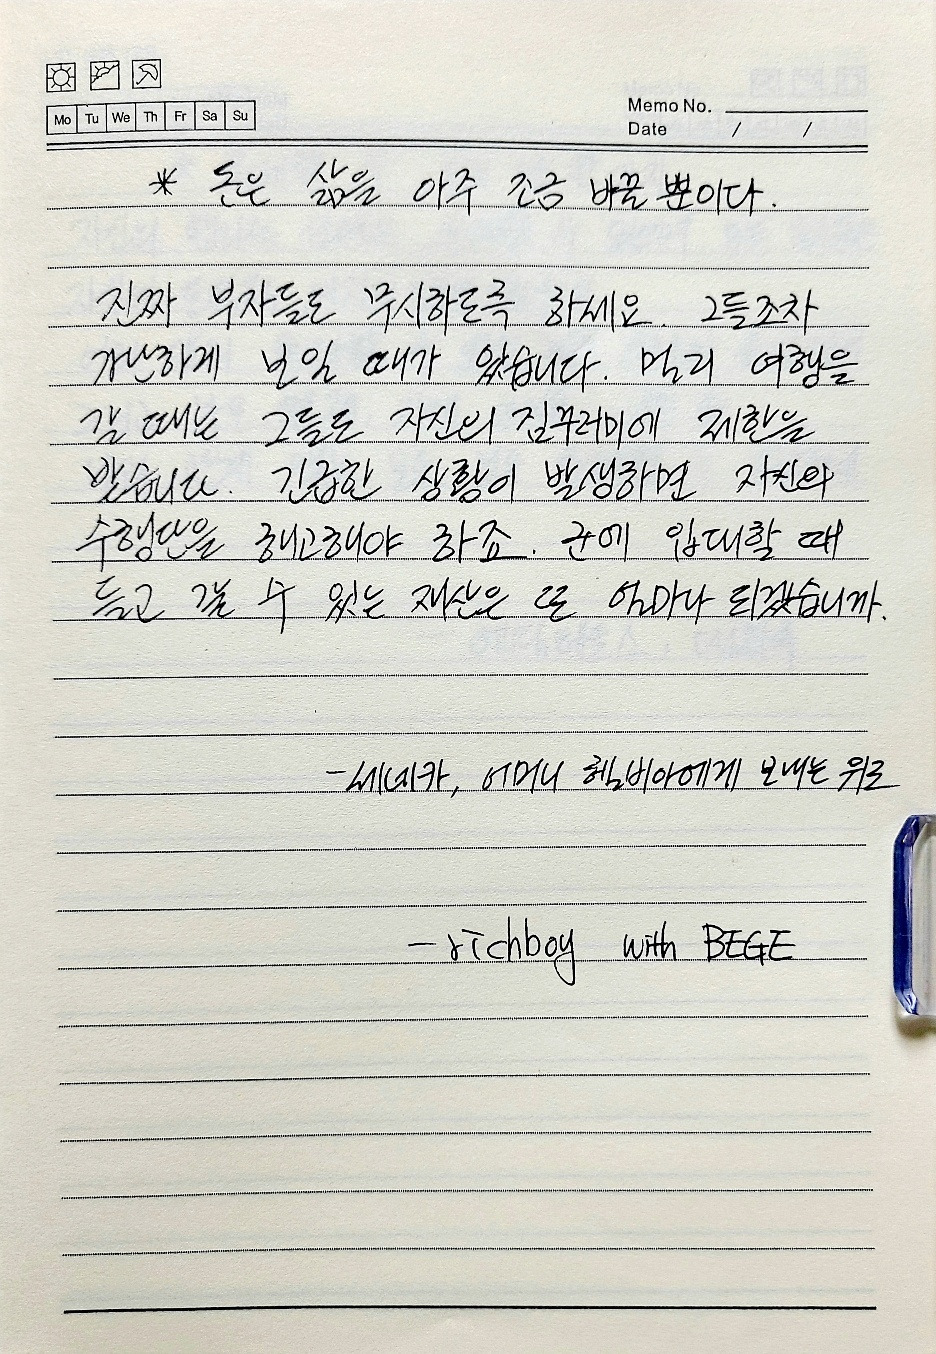 Mo Tu We Th Fr Sa Su
Memo No.
Date / /
* 돈은 삶을 아주 조금 바꿀 뿐이다.
진짜 부자들도 무시하도록 하세요. 그들조차
가난하게 보일 때가 있습니다. 멀리 여행을
갈 때는 그들도 자신의 짐꾸러미에 제한을
받습니다. 긴급한 상황이 발생하면 자신의
수행단을 해고해야 하죠. 군에 입대할 때
들고 갈 수 있는 재산은 또 얼마나 되겠습니까.
- 세네카, 어머니 헬비아에게 보내는 위로
- richboy with BEGE